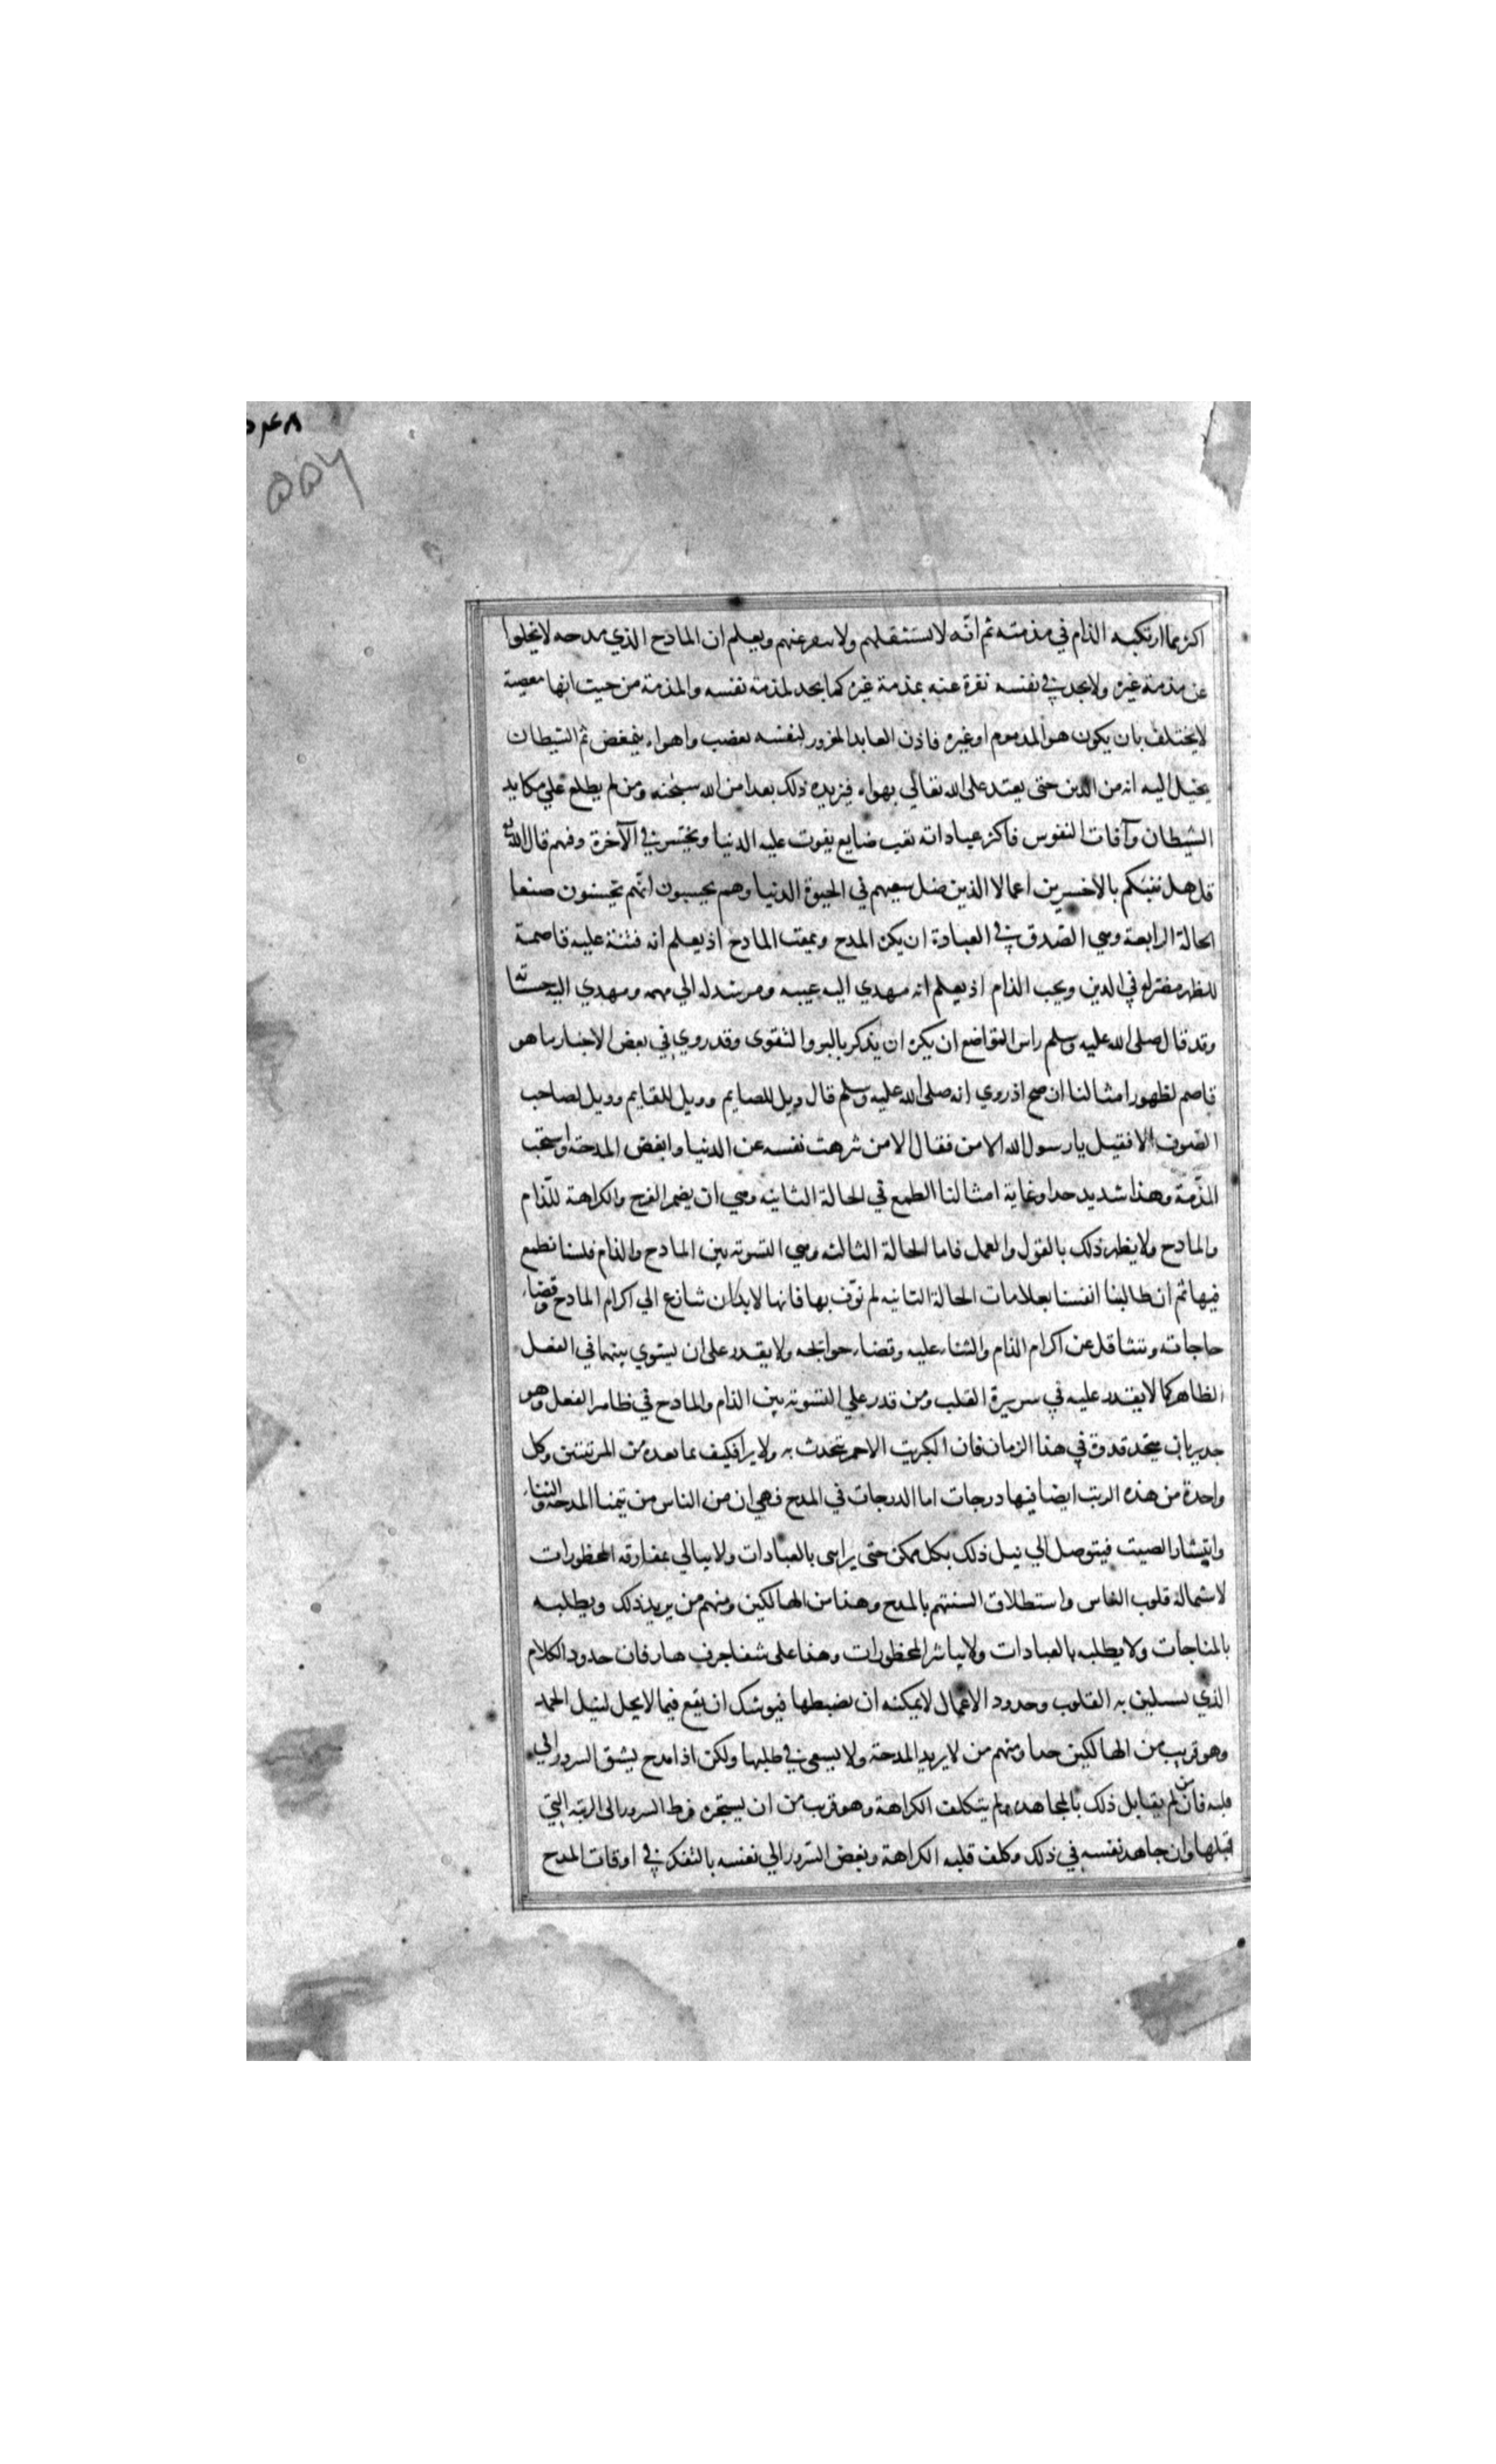 ٥٤٨
٥٥٧
اكثر مما ارتكبه الذام في مذمته ثم انّه لا يستثقلهم ولا ينفر عنهم ويعلم ان المادح الذي مدحه لا يخلوا
عن مذمة غيره ولا يجد في نفسه نفرة عنه بمذمة غيره كما يجد لمذمة نفسه والمذمة من حيث انها معصية
لا يختلف بان يكون هو المذموم او غيره فاذن العابد المغرور لنفسه يغضب ولهواه يتمغض ثم الشيطان
يخيل اليه انه من الدين حتى يعتد على الله تعالي بهواه فيزيده ذلك بعدا من الله سبحنه ومن لم يطلع علي مكايد
الشيطان وآفات النفوس فاكثر عباداته تعب ضايع يفوت عليه الدنيا ويخسر في الآخرة وفيهم قال الله تعالى
قل هل ننبئكم بالاخسرين اعمالا الذين ضل سعيهم في الحيوة الدنيا وهم يحسبون انهم يحسنون صنعا
الحالة الرابعة وهي الصّدق في العبادة ان يكره المدح ويمقت المادح اذ يعلم انه فتنة عليه قاصمة
للظهر مضرة له في الدين ويحب الذام اذ يعلم انه مهدي اليه عيبه ومرشد له الي مهمه ومهدي اليه حسناته
وقد قال صلى الله عليه وسلم راس التواضع ان يكره ان يذكر بالبر والتقوى وقد روي في بعض الاخبار ما هو
قاصم لظهور امثالنا ان صح اذ روي انه صلى الله عليه وسلم قال ويل للصايم وويل للقايم وويل لصاحب
الصّوف الا فقيل يا رسول الله الا من فقال الا من تنزهت نفسه عن الدنيا وابغض المدحة واستحب
المذّمة وهذا شديد جدا وغاية امثالنا الطمع في الحالة الثانيه وهي ان يضمر الفرح والكراهة للذّام
والمادح ولا يظهر ذلك بالقول والعمل فاما الحالة الثالثه وهي التسويه بين المادح والذام فلسنا نطمع
فيها ثم ان طالبنا انفسنا بعلامات الحالة الثانيه لم توّف بها فانها لا بد ان تسارع الي اكرام المادح وقضاء
حاجاته وتتثاقل عن اكرام الذام والثناء عليه وقضاء حوايجه ولا يقدر على ان يسوي بينهما في الفعل
الظاهر كما لا يقدر عليه في سريرة القلب ومن قدر علي التسويه بين الذام والمادح في ظاهر الفعل وهو
جدير بان يتخذ قدوة في هذا الزمان فان الكبريت الاحمر يتحدث به ولا يرا فكيف بما بعده من المرتبتين وكل
واحدة من هذه الرتب ايضا فيها درجات اما الدرجات في المدح فهي ان من الناس من يتمنا المدحة والثناء
وانتشار الصيت فيتوصل الي نيل ذلك بكل ممكن حتى يرايى بالعبادات ولا يبالي بمفارقه المحظورات
لاستمالة قلوب الناس واستطلاق السنتهم بالمدح وهذا من الهالكين ومنهم من يريد ذلك ويطلبه
بالمناجات ولا يطلبه بالعبادات ولا يباشر المحظورات وهذا على شفا جرف هار فان حدود الكلام
الذي يستميل به القلوب وحدود الاعمال لا يمكنه ان يضبطها فيوشك ان يقع فيما لا يحل لنيل الحمد
وهو قريب من الهالكين جدا ومنهم من لا يريد المدحة ولا يسعى في طلبها ولكن اذا مدح يسبق السرور الي
قلبه فان لم يقابل ذلك بالمجاهده ولم يتكلف الكراهة وهو قريب من ان يستجره فرط السرور الى الرتبه التي
قبلها وان جاهد نفسه في ذلك وكلف قلبه الكراهة وبغض السرور الي نفسه بالتفكر في اوقات المدح